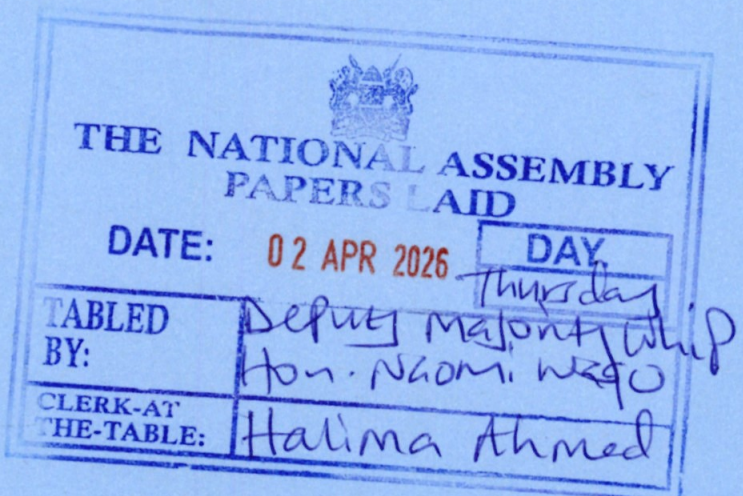 THE NATIONAL ASSEMBLY
PAPERS LAID
DATE: 02 APR 2026 DAY
Thursday
TABLED BY: Deputy Majority Whip
Hon. Naomi Waqo
CLERK-AT THE-TABLE: Halima Ahmed